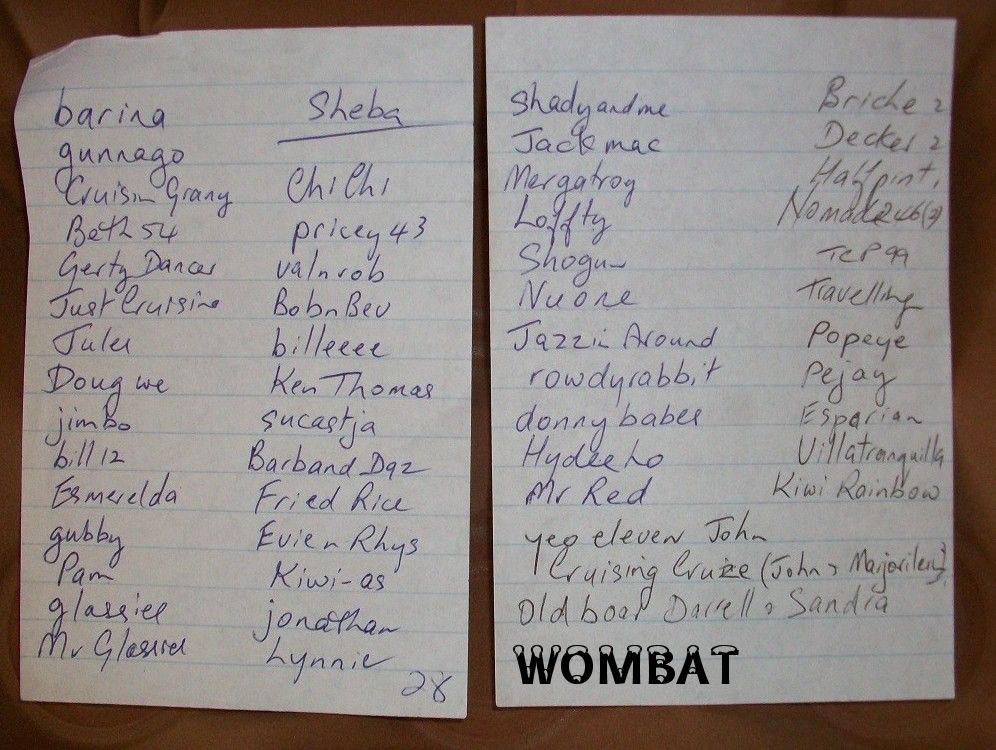 barina Sheba
gunnago
Cruisin Grany ChiChi
Beth 54 pricey 43
Gerty Dancer valnrob
Just Cruisine BobnBev
Jules billeeee
Doug we Ken Thomas
jimbo sucastja
bill 12 Barband Daz
Esmerelda Fried Rice
gubby Evie n Rhys
Pam Kiwi-as
glassiee jonathan
Mr Glassiee Lynnie
28
Shadyandme Briche 2
Jackmac Decker 2
Mergatroy Halfpint,
Loffty Nomad246(2)
Shogun TCP99
Nuone Travelling
Jazzin Around Popeye
rowdyrabbit Pejay
donnybabes Esparian
Hydeeho Villatranquilla
Mr Red Kiwi Rainbow
yeo eleven John
Cruising Cruize (John &
Old boar Darrell & Sandra
WOMBAT